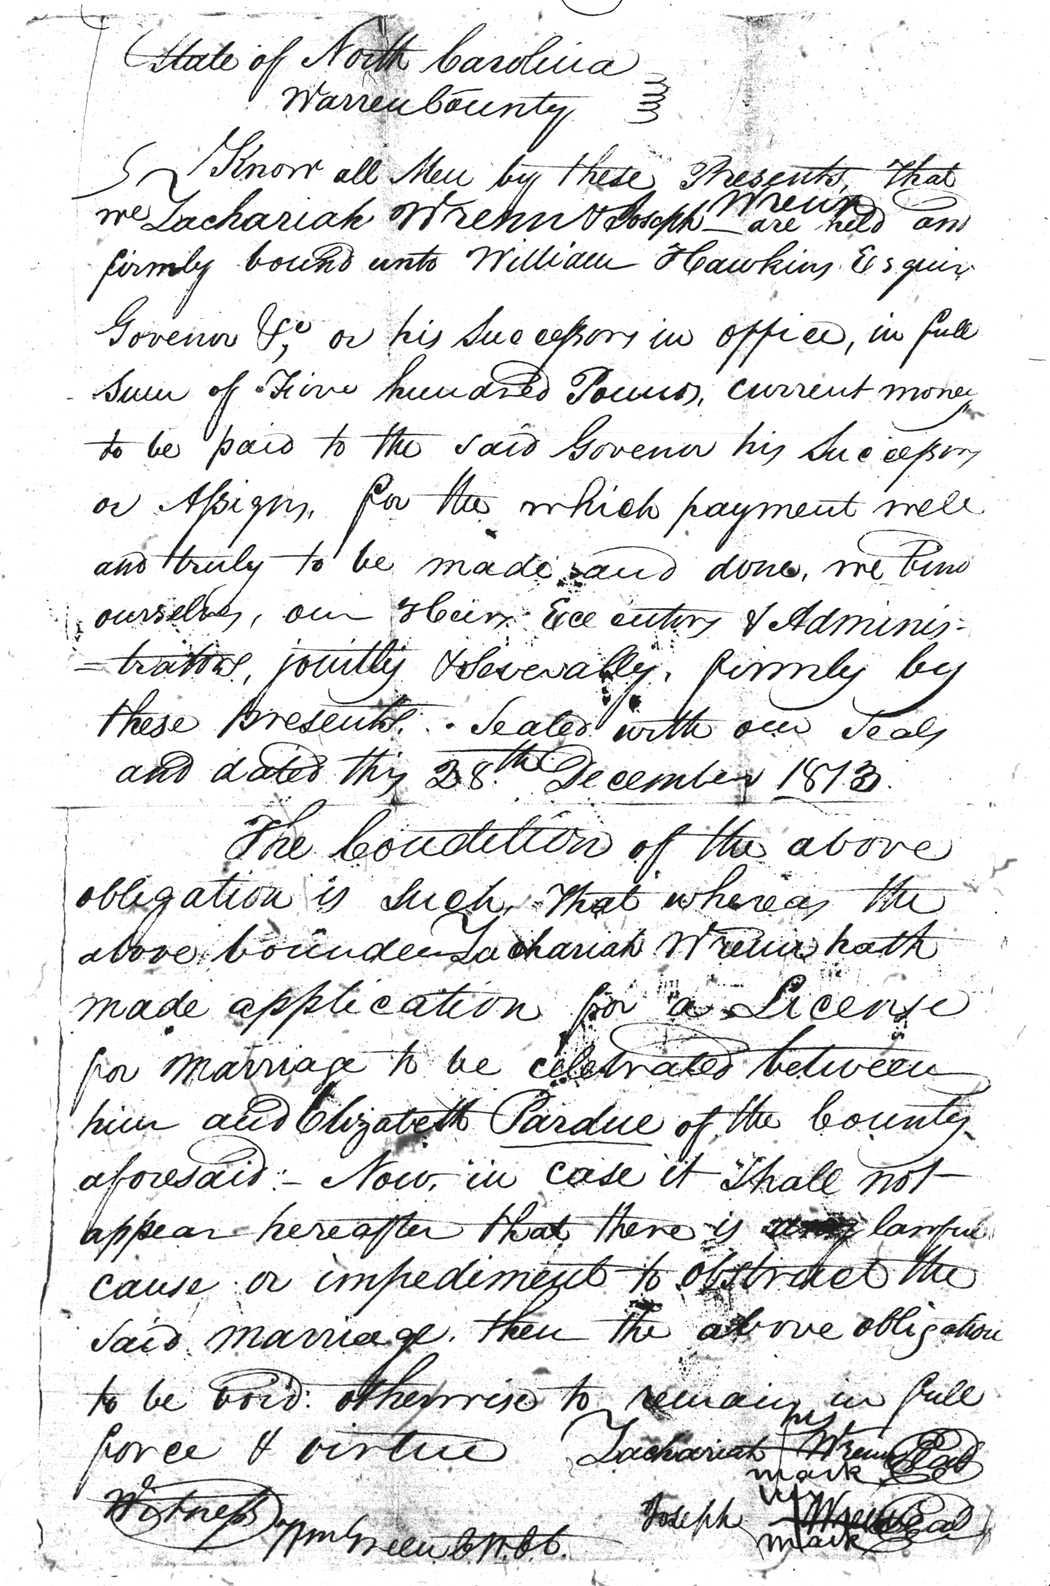 State of North Carolina
Warren County
Know all Men by these Presents, that
we Zachariah Wrenn & Joseph Wrenn are held and
firmly bound unto William Hawkins Esquir
Govenor &c, or his Successors in office, in full
Sum of Five hundred Pounds, current money
to be paid to the said Govenor his Successors
or Assigns, for the which payment well
and truly to be made and done, we bind
ourselves, our Heirs Executors & Adminis-
-trators, jointly & Severally, firmly by
these presents. Sealed with our Seals
and dated this 28th December 1813.
The Condition of the above
obligation is such, that whereas the
above bounden Zachariah Wrenn hath
made application for a License
for marriage to be celebrated between
him and Elizabeth Pardue of the County
aforesaid:- Now, in case it shall not
appear hereafter that there is any lawful
cause or impediment to obstruct the
said marriage. then the above obligation
to be void: otherwise to remain in full
force & virtue Zachariah his mark Wrenn Seal
Joseph his mark Wrenn Seal
Witness Wm Green